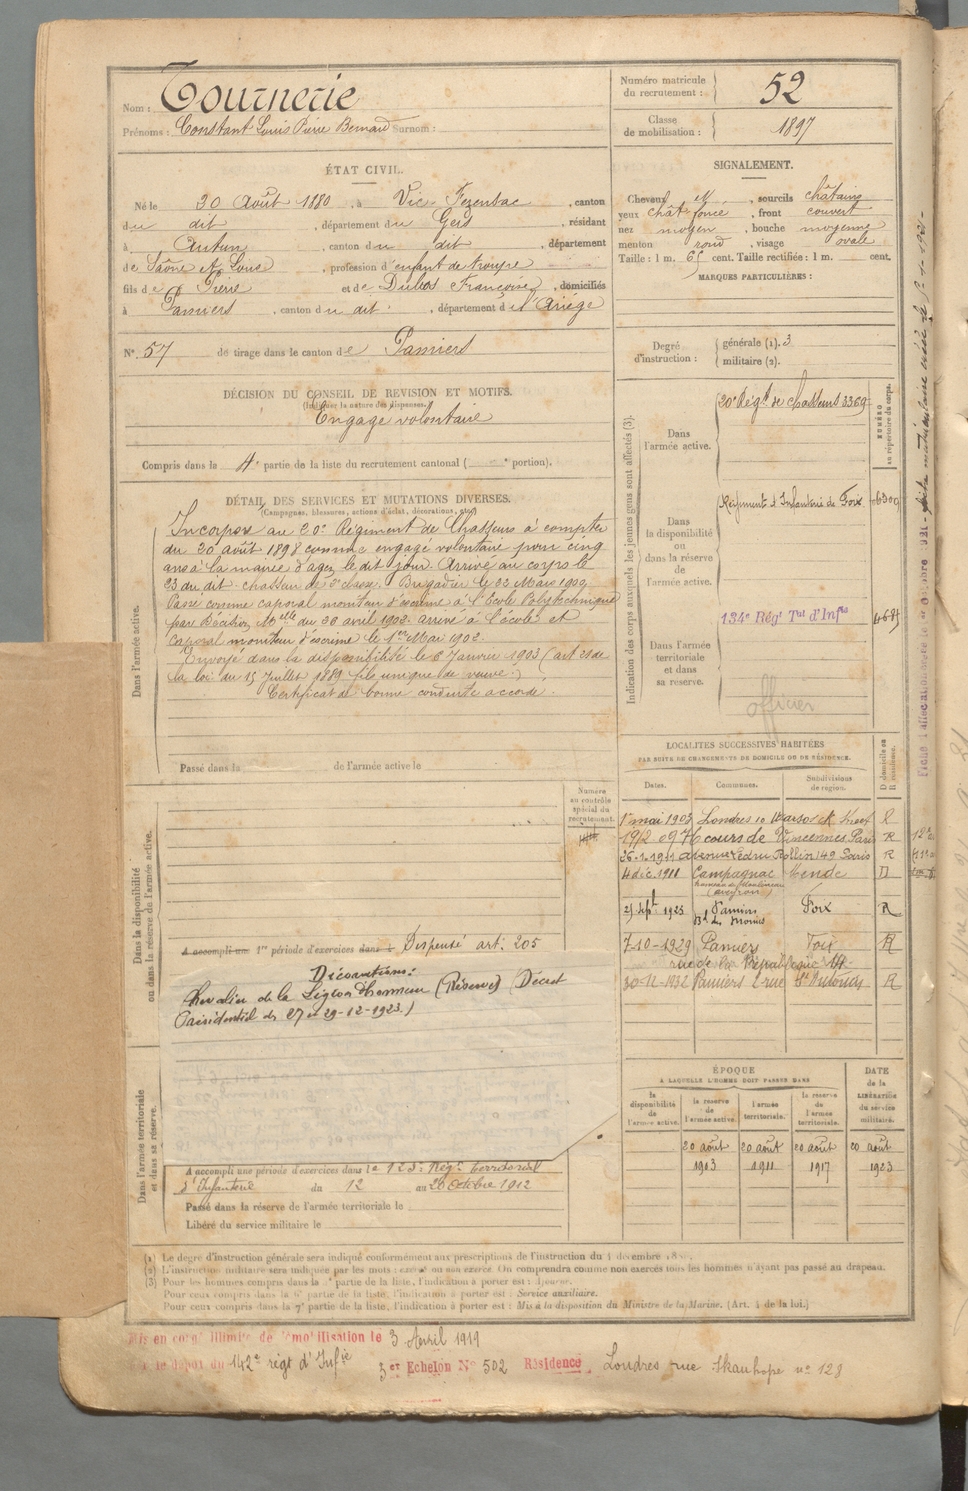 Nom : Tournerie
Prénoms : Constant Louis Pierre Bernard Surnom :
Numéro matricule du recrutement : 52
Classe de mobilisation : 1897
ÉTAT CIVIL.
Né le 20 Août 1880, à Vic Fezensac, canton
du dit, département du Gers, résidant
à Autun, canton du dit, département
de Saône et Loire, profession d'enfant de troupe
fils de Pierre et de Dubos Françoise, domiciliés
à Pamiers, canton du dit, département de l'Ariège
N° 57 de tirage dans le canton de Pamiers
SIGNALEMENT.
Cheveux N, sourcils châtains
yeux chât foncé, front couvert
nez moyen, bouche moyenne
menton rond, visage ovale
Taille : 1 m. 65 cent. Taille rectifiée : 1 m. cent.
MARQUES PARTICULIÈRES :
Degré d'instruction : générale (1). 3
militaire (2).
DÉCISION DU CONSEIL DE REVISION ET MOTIFS.
(Indiquer la nature des dispenses.)
Engagé volontaire
Compris dans la 4e partie de la liste du recrutement cantonal ( portion).
DÉTAIL DES SERVICES ET MUTATIONS DIVERSES.
(Campagnes, blessures, actions d'éclat, décorations, etc.)
Dans l'armée active.
Incorporé au 20e Régiment de Chasseurs à compter
du 20 août 1898 comme engagé volontaire pour cinq
ans à la mairie d'Agen le dit jour. Arrivé au corps le
23 du dit. chasseur de 2e classe. Brigadier le 22 Mars 1902
Passé comme caporal moniteur d'escrime à l'Ecole Polytechnique
par Décision Melle du 26 avril 1902. arrivé à l'école et
caporal moniteur d'escrime le 1er Mai 1902.
Envoyé dans la disponibilité le 6 Janvier 1903 (art 21 de
la loi du 15 Juillet 1889 fils unique de veuve.)
Certificat de bonne conduite accordé.
Passé dans la de l'armée active le
Numéro au contrôle spécial du recrutement.
Dans la disponibilité ou dans la réserve de l'armée active.
A accompli une 1re période d'exercices dans l Dispensé art. 205
Décorations :
Chevalier de la Légion d'honneur (Réserve) (Décret
Présidentiel du 27 et 29-12-1923)
Dans l'armée territoriale et dans sa réserve.
A accompli une période d'exercices dans le 123e Régt territorial
d'Infanterie du 12 au 20 Octobre 1912
Passé dans la réserve de l'armée territoriale le
Libéré du service militaire le
Indication des corps auxquels les jeunes gens sont affectés (3).
NUMÉRO au répertoire du corps.
Dans l'armée active.
20e Régt de Chasseurs 3369
Dans la disponibilité ou dans la réserve de l'armée active.
Régiment d'Infanterie de Foix 06309
Dans l'armée territoriale et dans sa réserve.
134e Régt Tal d'Infie
officier
LOCALITÉS SUCCESSIVES HABITÉES
PAR SUITE DE CHANGEMENTS DE DOMICILE OU DE RÉSIDENCE.
Dates. Communes. Subdivisions de région. D domicile ou R résidence.
1er mai 1903 Londres 10
19/2 09 76 cours de Vincennes Paris R
26-1-1911 avenue Ledru Rollin 149 Paris R
4 déc. 1911 Campagnac Mende D
(aveyron)
21 Sept 1925 Pamiers Foix R
7-10-1929 Pamiers Foix R
rue de la République
30-12-1932 Pamiers 2 rue R
ÉPOQUE
À LAQUELLE L'HOMME DOIT PASSER DANS
la disponibilité de l'armée active. la réserve de l'armée active. l'armée territoriale. la réserve de l'armée territoriale.
DATE de la LIBÉRATION du service militaire.
20 août 20 août 20 août 20 août
1903 1911 1917 1923
(1) Le degré d'instruction générale sera indiqué conformément aux prescriptions de l'instruction du 4 décembre
(2) L'instruction militaire sera indiquée par les mots : exercé ou non exercé. On comprendra comme non exercés tous les hommes n'ayant pas passé au drapeau.
(3) Pour les hommes compris dans la partie de la liste, l'indication à porter est : Ajourné.
Pour ceux compris dans la 6e partie de la liste, l'indication à porter est : Service auxiliaire.
Pour ceux compris dans la 7e partie de la liste, l'indication à porter est : Mis à la disposition du Ministre de la Marine. (Art. 4 de la loi.)
Mis en congé illimité de démobilisation le 3 Avril 1919
le dépôt du 142e régt d'Infie 3er Echelon N° 502 Résidence, Londres rue Skanhope no 128